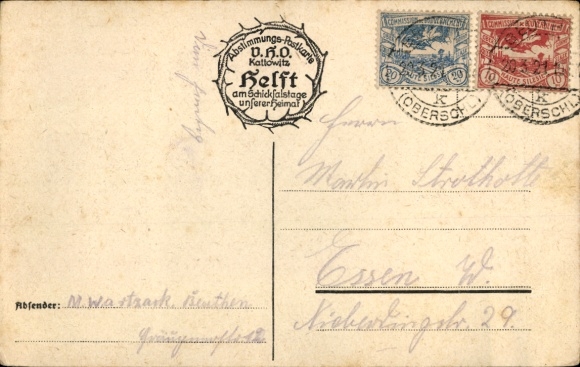 Abstimmungs-Postkarte
V.H.O.
Kattowitz
Helft
am Schicksalstage
unserer Heimat
COMMISSION DE GOUVERNEMENT
20 20
HAUTE SILESIE
COMMISSION DE GOUVERNEMENT
10 10
HAUTE SILESIE
k
(OBERSCHL.)
k
(OBERSCHL.)
Herrn
Martin Strotholt
Essen W.
Nieberdingstr. 29.
Absender: M. Beuthen